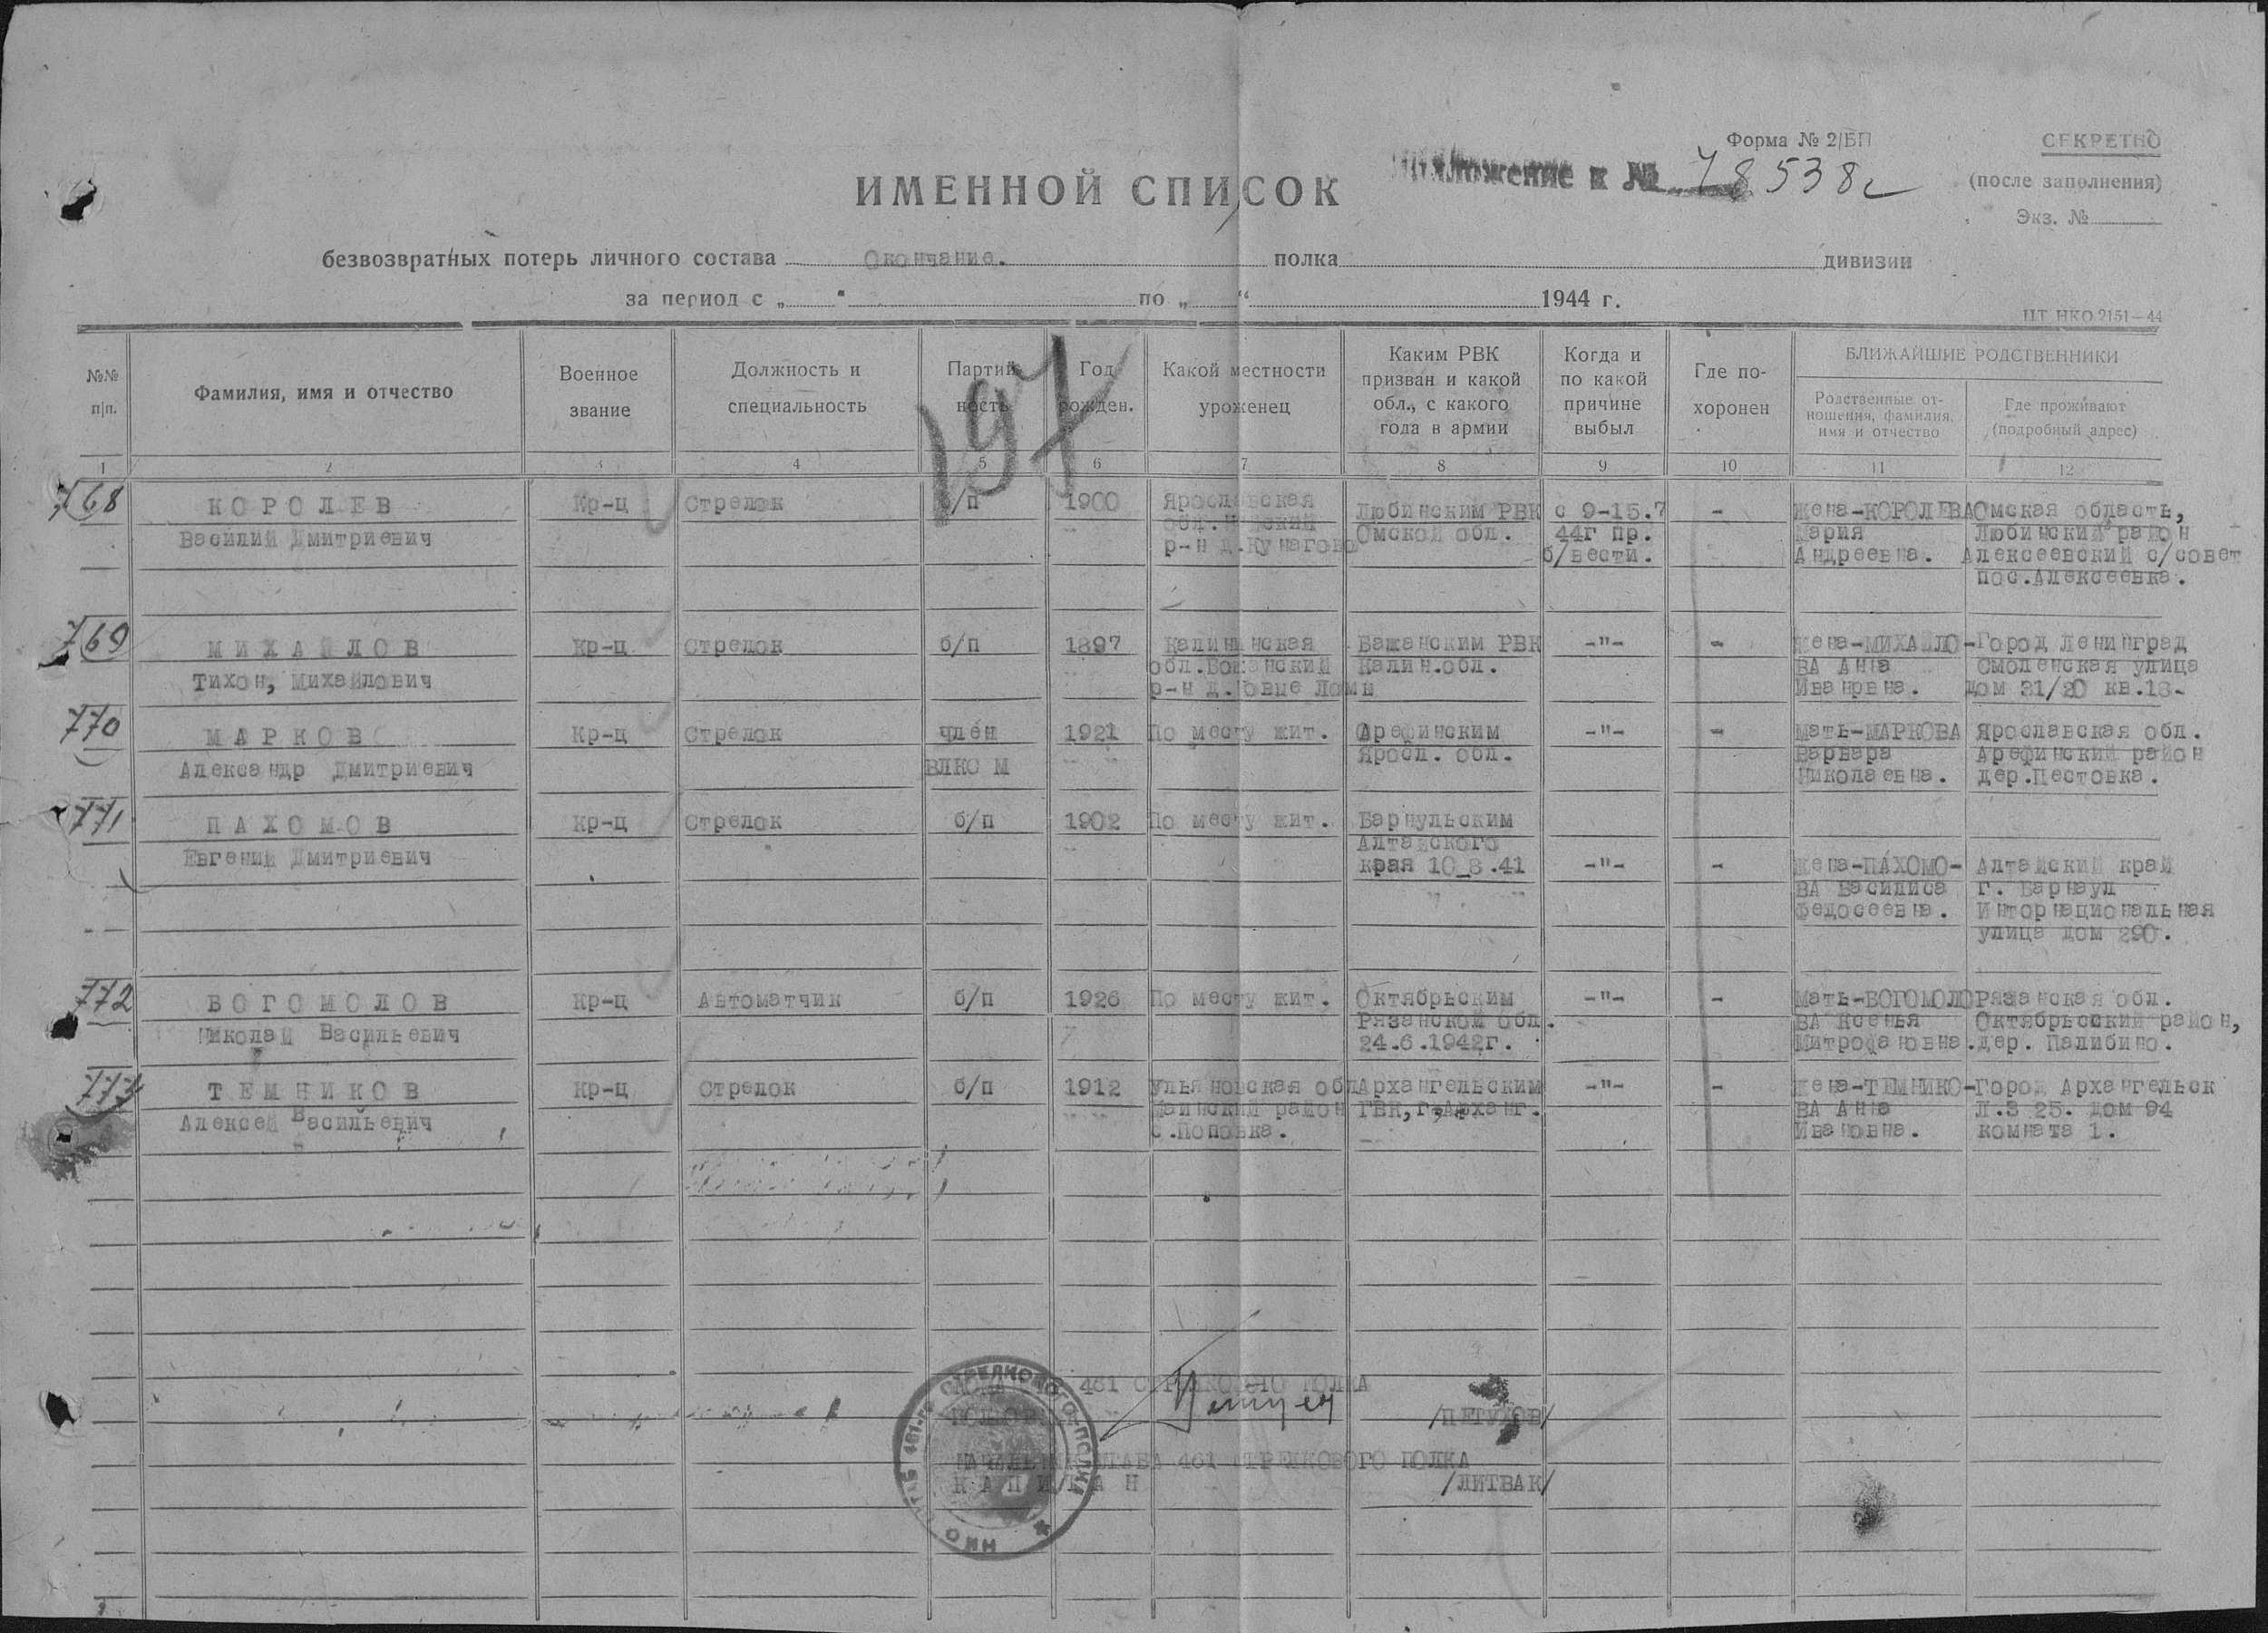 Форма № 2/БП
СЕКРЕТНО
Приложение к № 78538с
(после заполнения)
ИМЕННОЙ СПИСОК
Экз. №
безвозвратных потерь личного состава Окончание. полка дивизии
за период с „ “ по „ “ 1944 г.
ЦТ НКО 2151—44
197
№№ п|п.
Фамилия, имя и отчество
Военное звание
Должность и специальность
Партийность
Год рожден.
Какой местности уроженец
Каким РВК призван и какой обл., с какого года в армии
Когда и по какой причине выбыл
Где похоронен
БЛИЖАЙШИЕ РОДСТВЕННИКИ
Родственные отношения, фамилия, имя и отчество
Где проживают (подробный адрес)
1 2 3 4 5 6 7 8 9 10 11 12
768
КОРОЛЕВ
Василий Дмитриевич
Кр-ц
Стрелок
б/п
1900
Ярославская
обл.
р-н д.Кумагово
Любинским РВК
Омской обл.
с 9-15.7
44г пр.
б/вести.
-
Жена-КОРОЛЕВА
Мария
Андреевна.
Омская область,
Любинский район
Алексеевский с/совет
пос.Алексеевка.
769
МИХАЙЛОВ
Тихон, Михайлович
Кр-ц
Стрелок
б/п
1897
Калининская
обл.
р-н д. Ломы
РВК
Калин.обл.
-"-
-
Жена-МИХАЙЛО-
ВА Анна
Ивановна.
Город Ленинград
Смоленская улица
дом 31/20 кв.18.
770
МАРКОВ
Александр Дмитриевич
Кр-ц
Стрелок
член
ВЛКСМ
1921
По месту жит.
Арефинским
Яросл. обл.
-"-
-
Мать-МАРКОВА
Варвара
Николаевна.
Ярославская обл.
Арефинский район
дер.Пестовка.
771
ПАХОМОВ
Евгений Дмитриевич
Кр-ц
Стрелок
б/п
1902
По месту жит.
Барнульским
Алтайского
края 10_8.41
-"-
-
Жена-ПАХОМО-
ВА Василиса
Федосеевна.
Алтайский край
г. Барнаул
Интернациональная
улица дом 290.
772
БОГОМОЛОВ
Николай Васильевич
Кр-ц
Автоматчик
б/п
1926
По месту жит.
Октябрьским
Рязанской обл.
24.6.1942г.
-"-
-
Мать-БОГОМОЛО
ВА Ксенья
Митрофановна.
Рязанская обл.
Октябрьсский район,
дер. Палибино.
773
ТЕМНИКОВ
Алексей Васильевич
Кр-ц
Стрелок
б/п
1912
Ульяновская обл
Майнский район
с.Поповка.
Архангельским
ГВК, г.Арханг.
-"-
-
Жена-ТЕМНИКО-
ВА Анна
Ивановна.
Город Архангельск
Л.З 25. дом 94
комната 1.
461 СТРЕЛКОВОГО ПОЛКА
/ПЕТУХОВ/
НАЧАЛЬНИК ШТАБА 461 СТРЕЛКОВОГО ПОЛКА
КАПИТАН
/ЛИТВАК/
НКО ШТАБ 461-го СТРЕЛКОВОГО ПОЛКА